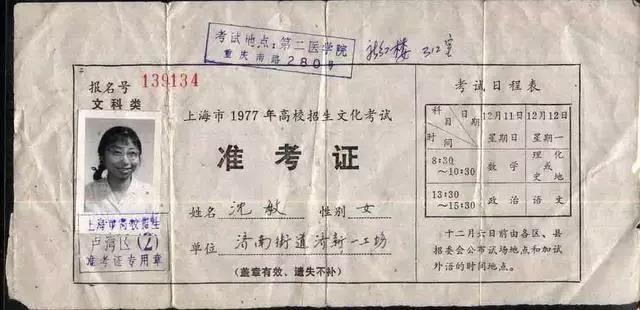 考试地点：第二医学院
重庆南路280号
312室
报名号 139134
文科类
上海市1977年高校招生文化考试
准考证
姓名 沈敏 性别 女
单位 济南街道济新一工场
(盖章有效、遗失不补)
上海市高校招生
卢湾区(2)
准考证专用章
考试日程表
科目 日期 时间
12月11日 星期日
12月12日 星期一
8:30～10:30 数学 理化或史地
13:30～15:30 政治 语文
十二月六日前由各区、县
招委会公布试场地点和加试
外语的时间地点。